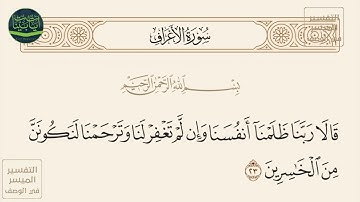 سُورَةُ الأَعْرَافِ
بِسْمِ اللَّهِ الرَّحْمَنِ الرَّحِيمِ
قَالَا رَبَّنَا ظَلَمْنَآ أَنفُسَنَا وَإِن لَّمْ تَغْفِرْ لَنَا وَتَرْحَمْنَا لَنَكُونَنَّ
مِنَ ٱلْخَـٰسِرِينَ ٢٣
التفسير
الميسر
في الوصف
التفسير
الميسر
في الوصف